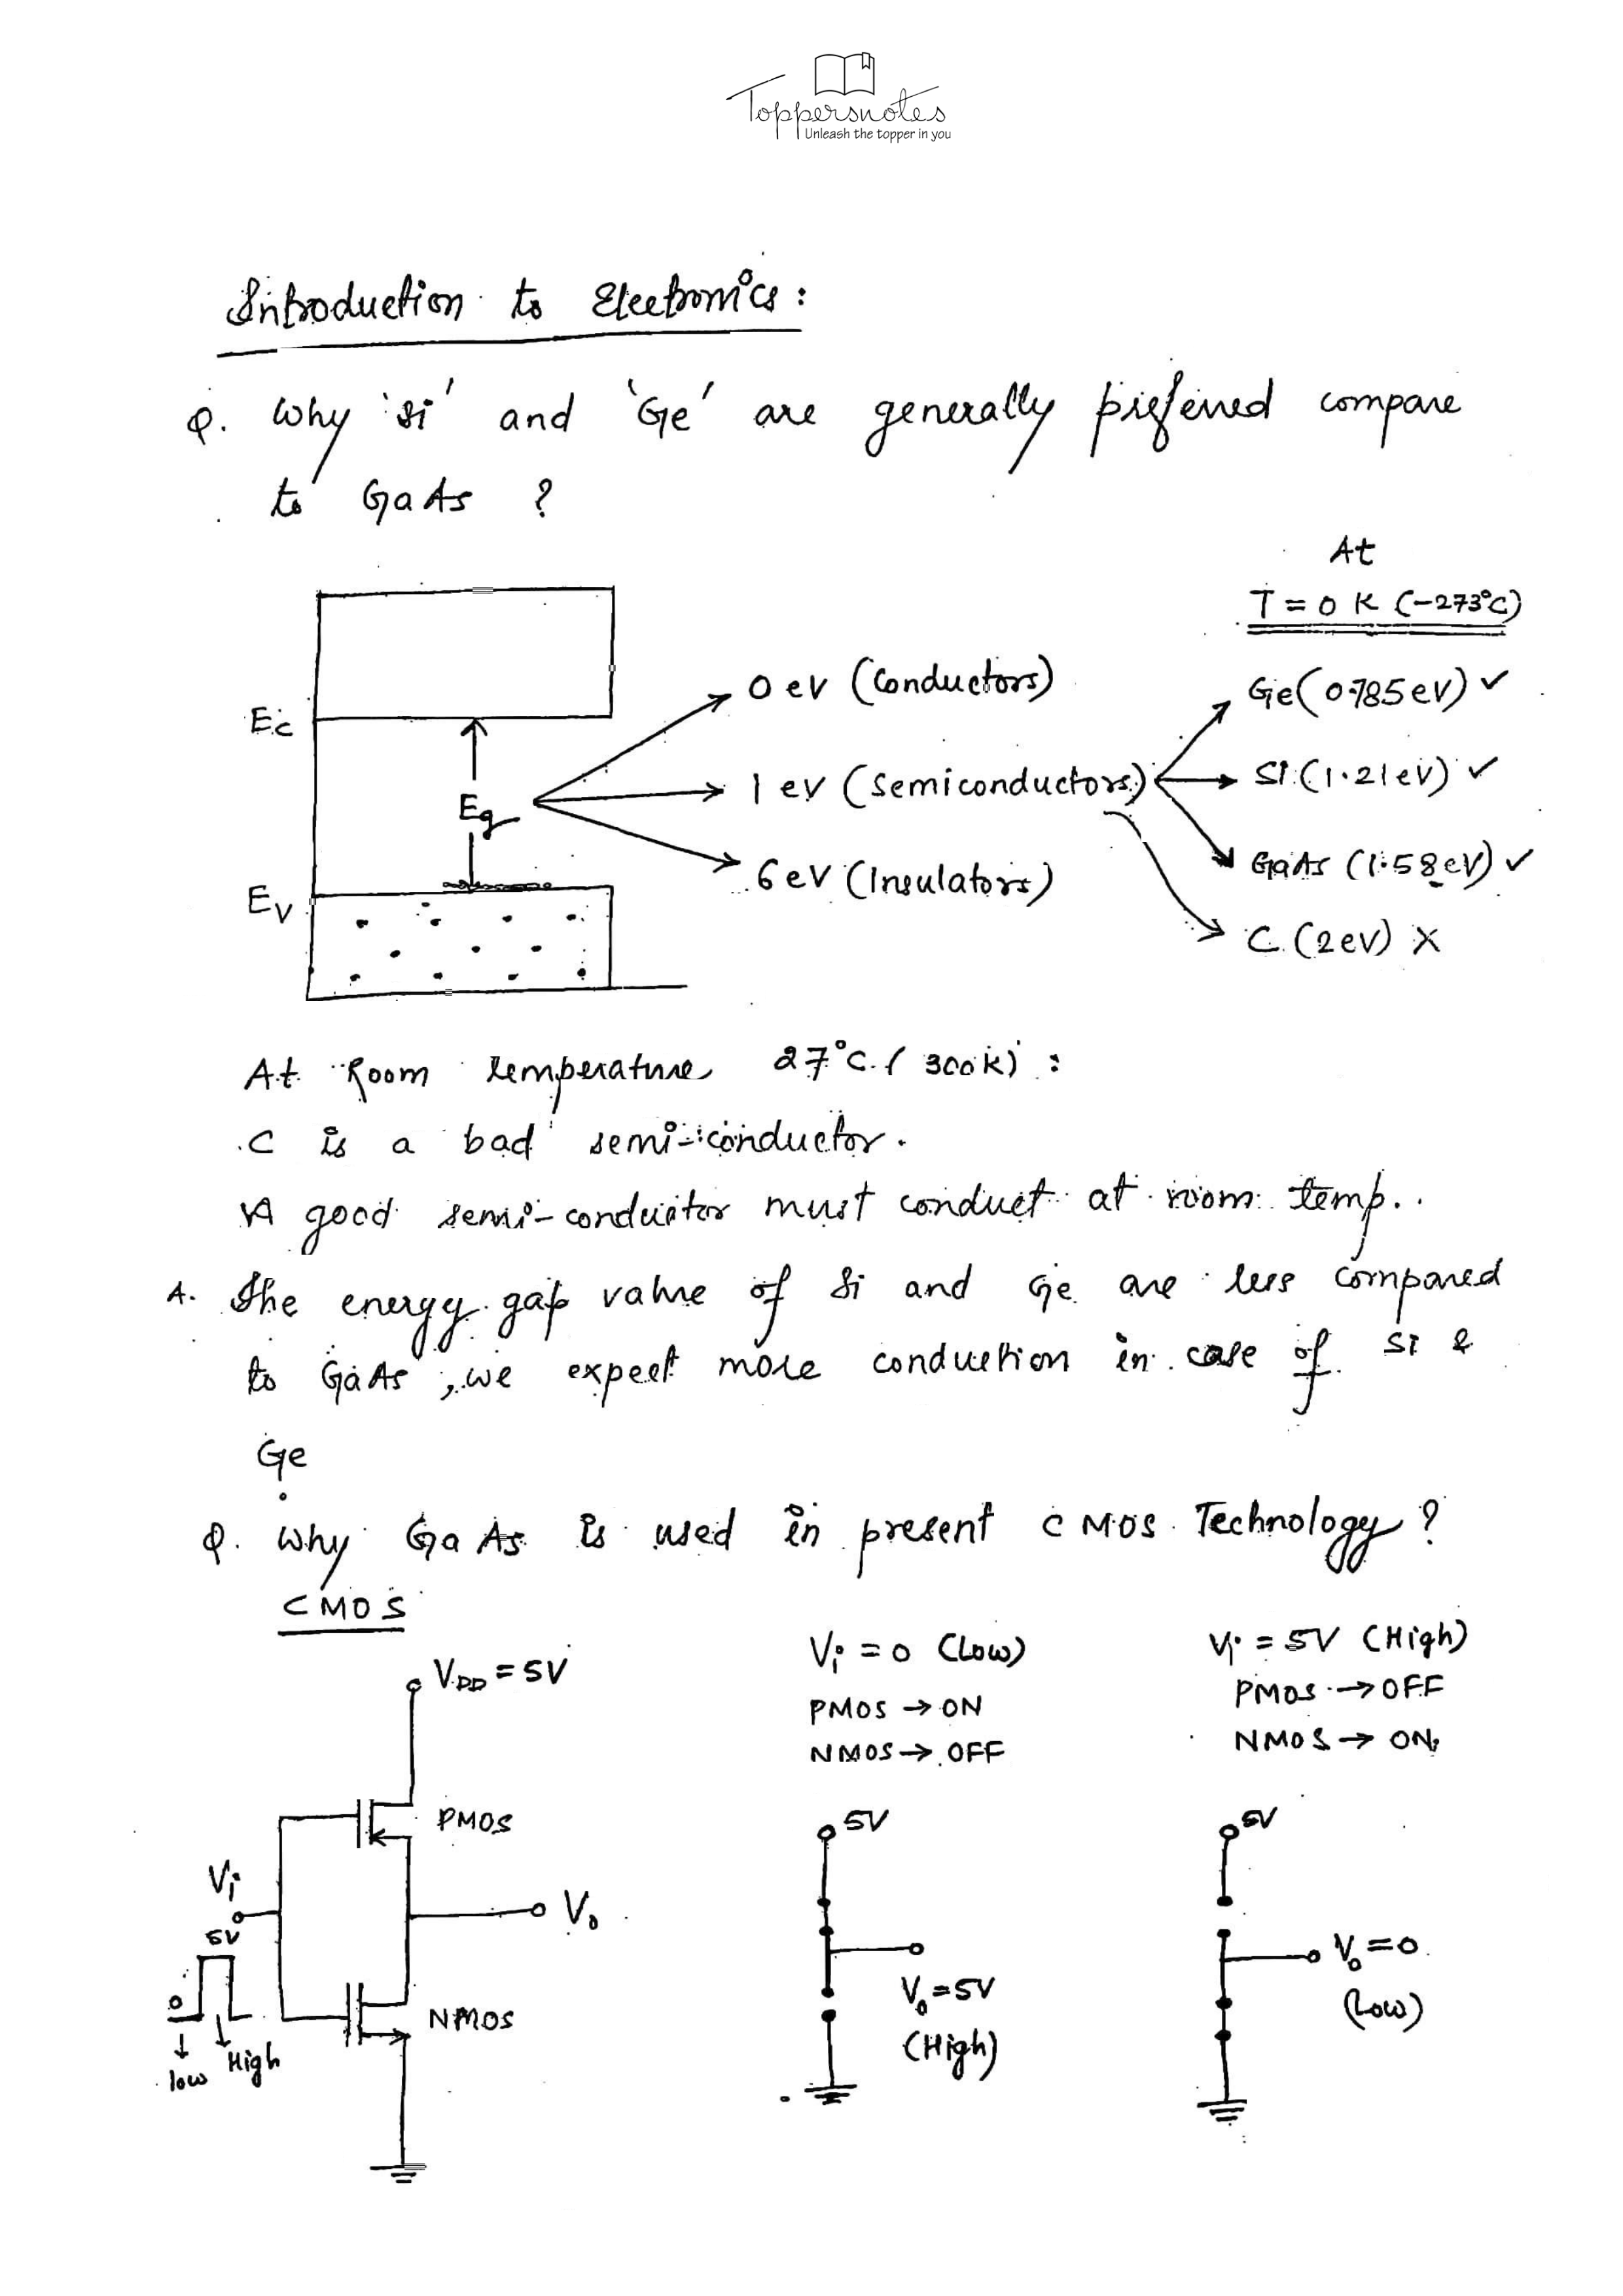 Toppersnotes
Unleash the topper in you
Introduction to Electronics:
Q. Why 'Si' and 'Ge' are generally preferred compare
to GaAs ?
At
T = 0 K (-273°C)
0 eV (Conductors)
Ge (0.785 eV) ✓
Ec
1 eV (Semiconductors)
Si (1.21 eV) ✓
Eg
6 eV (Insulators)
GaAs (1.58 eV) ✓
Ev
C (2 eV) X
At Room temperature 27°C (300K) :
C is a bad semi-conductor.
A good semi-conductor must conduct at room temp..
A. The energy gap value of Si and Ge are less compared
to GaAs, we expect more conduction in case of Si &
Ge
Q. Why GaAs is used in present CMOS Technology ?
CMOS
VDD = 5V
PMOS
Vi
5V
0
low
High
Vo
NMOS
Vi = 0 (Low)
PMOS → ON
NMOS → OFF
5V
Vo = 5V
(High)
Vi = 5V (High)
PMOS → OFF
NMOS → ON
5V
Vo = 0
(Low)